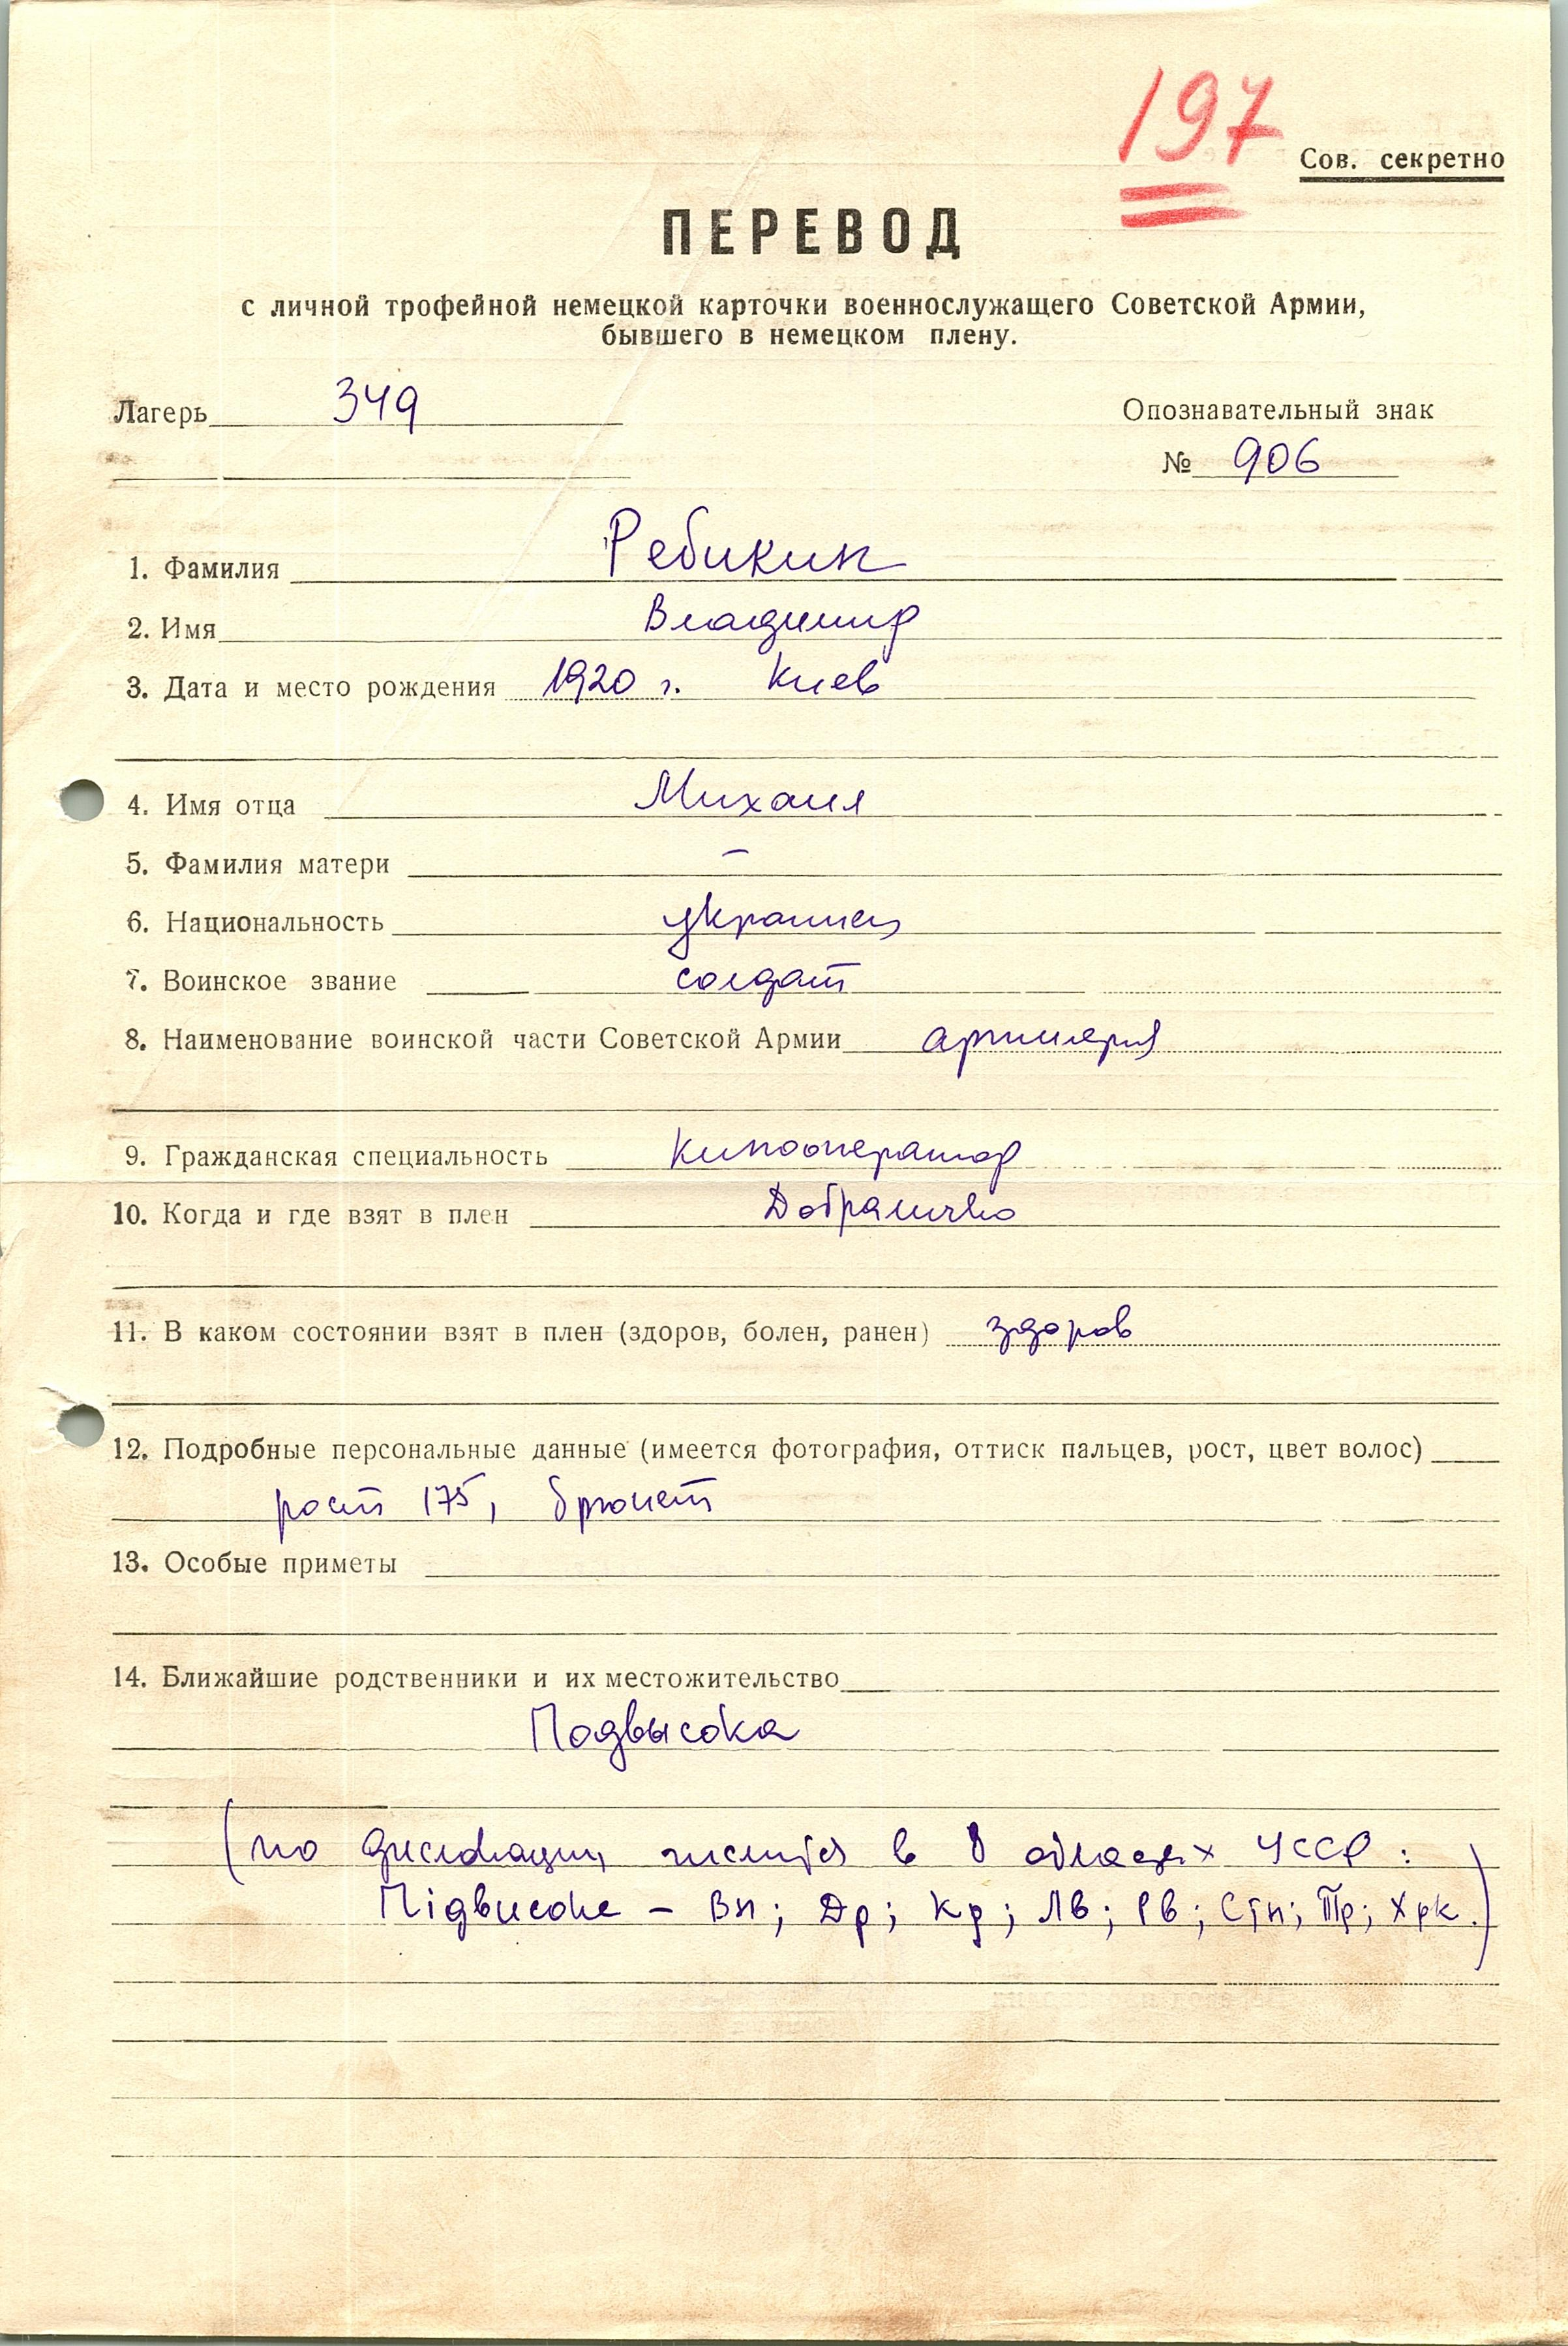 197
Сов. секретно
ПЕРЕВОД
с личной трофейной немецкой карточки военнослужащего Советской Армии,
бывшего в немецком плену.
Лагерь 349
Опознавательный знак
№ 906
1. Фамилия Ребикин
2. Имя Владимир
3. Дата и место рождения 1920 г. Киев
4. Имя отца Михаил
5. Фамилия матери —
6. Национальность украинец
7. Воинское звание солдат
8. Наименование воинской части Советской Армии артиллерия
9. Гражданская специальность Кинооператор
10. Когда и где взят в плен
11. В каком состоянии взят в плен (здоров, болен, ранен) здоров
12. Подробные персональные данные (имеется фотография, оттиск пальцев, рост, цвет волос)
рост 175, брюнет
13. Особые приметы
14. Ближайшие родственники и их местожительство
Подвысока
(по дислокации числится в 8 областях УССР:
Підвисоке – Вн; Др; Кд; Лв; Рв; Стн; Тр; Хрк.)